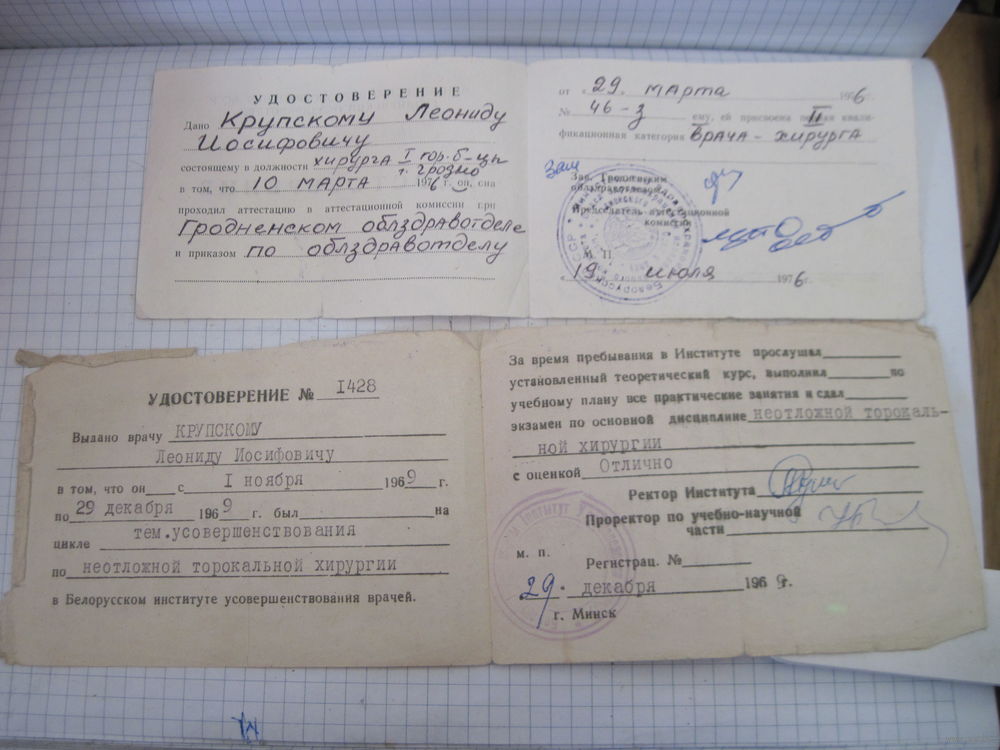 УДОСТОВЕРЕНИЕ
Дано Крупскому Леониду
Иосифовичу
состоящему в должности хирурга I гор.б-цы
г. Гродно
в том, что 10 марта 1976 г. он, она
проходил аттестацию в аттестационной комиссии при
Гродненском облздравотделе
и приказом по облздравотделу
от «29. марта 1976.
№ 46-з ему, ей присвоена II квали-
фикационная категория врача-хирурга
Зам
Зав. Гродненским
облздравотделом
Председатель аттестационной
комиссии
М. П.
«19 июля 1976г.
УДОСТОВЕРЕНИЕ № I428
Выдано врачу КРУПСКОМУ
Леониду Иосифовичу
в том, что он с I ноября 1969 г.
по 29 декабря 1969 г. был на
цикле тем.усовершенствования
по неотложной торокальной хирургии
в Белорусском институте усовершенствования врачей.
За время пребывания в Институте прослушал
установленный теоретический курс, выполнил по
учебному плану все практические занятия и сдал
экзамен по основной дисциплине неотложной торокаль-
ной хирургии
с оценкой Отлично
Ректор Института
Проректор по учебно-научной
части
м. п.
Регистрац. №
29. декабря 1969г.
г. Минск